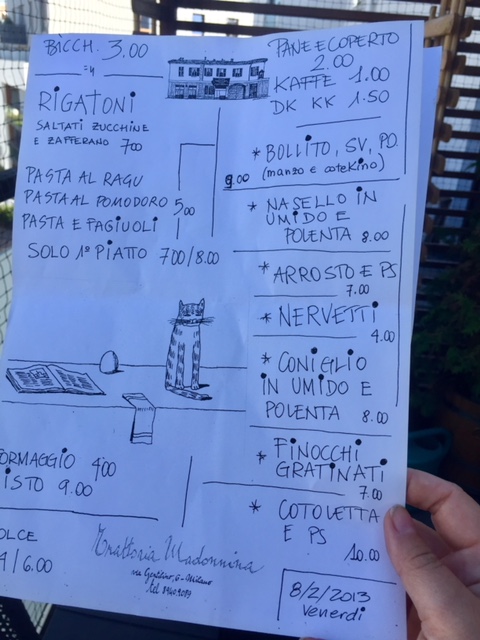 BICCH. 3.00
RIGATONI
SALTATI ZUCCHINE
E ZAFFERANO 700
PASTA AL RAGU
PASTA AL POMODORO 500
PASTA E FAGIUOLI
SOLO 1º PIATTO 700/8.00
FORMAGGIO 400
MISTO 9.00
DOLCE
4/6.00
Trattoria Madonnina
via Gentilino, 6 - Milano
PANE E COPERTO
2.00
KAFFE 1.00
DK KK 1.50
* BOLLITO, SV, PO.
(manzo e coteKino)
9.00
* NASELLO IN
UMIDO E
POLENTA 8.00
* ARROSTO E PS
7.00
* NERVETTI
4.00
* CONIGLIO
IN UMIDO E
POLENTA 8.00
* FINOCCHI
GRATINATI
7.00
* COTOLETTA
E PS
10.00
8/2/2013
Venerdi